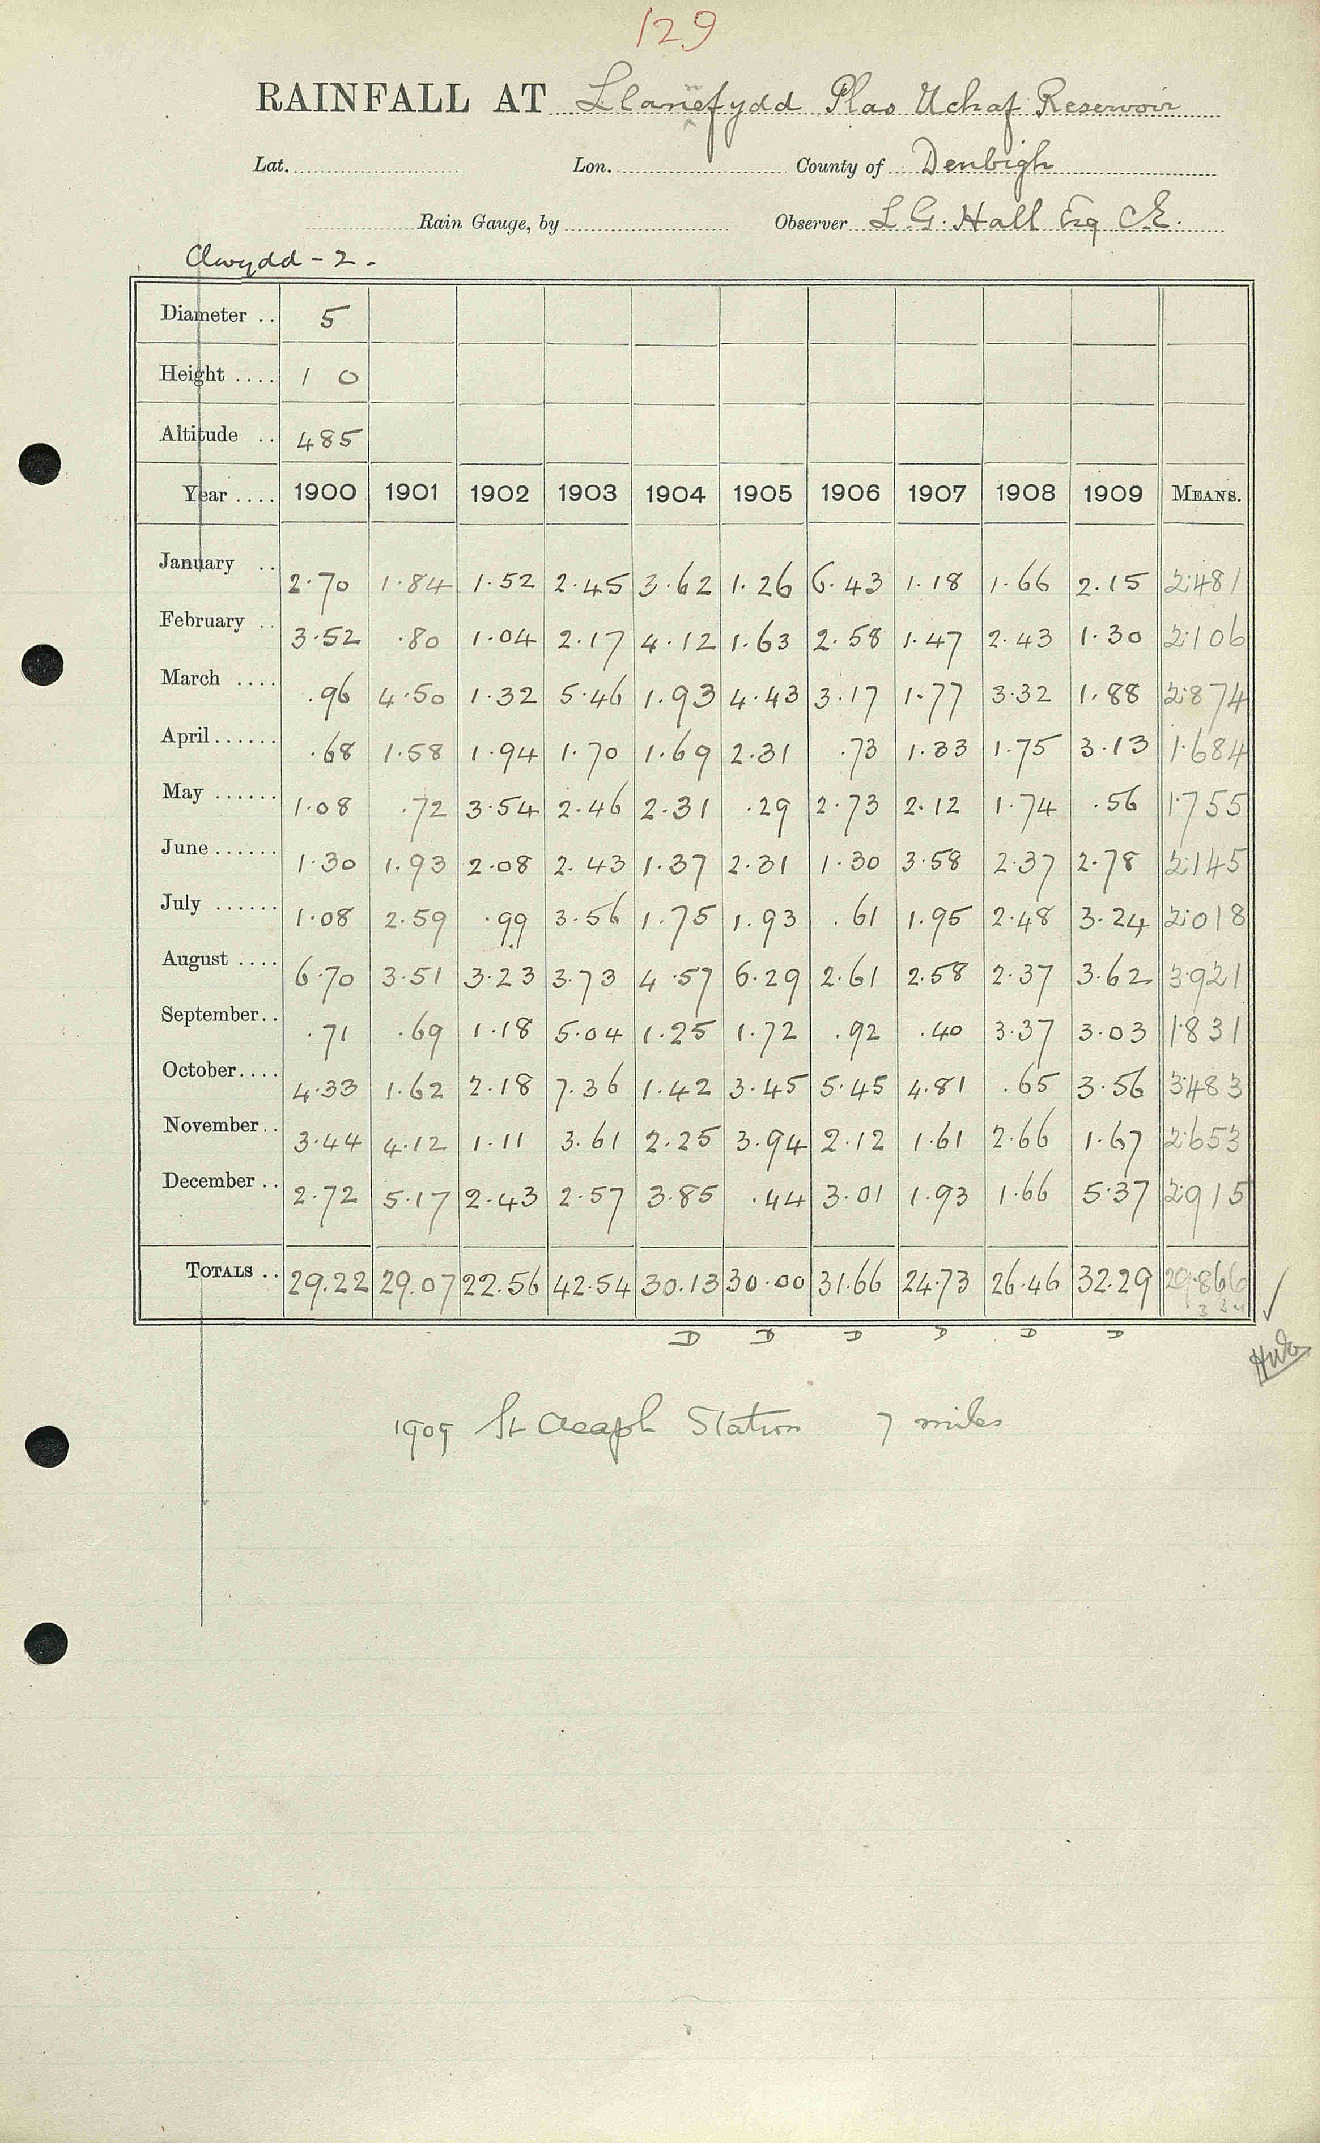 129
RAINFALL AT Llanefydd Plas Uchaf Reservoir
Lat. Lon. County of Denbigh
Rain Gauge, by Observer L. G. Hall Esq C.E.
Clwydd - 2 -
Diameter .. 5
Height .... 1 0
Altitude .. 485
Year .... 1900 1901 1902 1903 1904 1905 1906 1907 1908 1909 MEANS.
January .. 2.70 1.84 1.52 2.45 3.62 1.26 6.43 1.18 1.66 2.15 2.481
February .. 3.52 .80 1.04 2.17 4.12 1.63 2.58 1.47 2.43 1.30 2.106
March .... .96 4.50 1.32 5.46 1.93 4.43 3.17 1.77 3.32 1.88 2.874
April...... .68 1.58 1.94 1.70 1.69 2.31 .73 1.33 1.75 3.13 1.684
May ...... 1.08 .72 3.54 2.46 2.31 .29 2.73 2.12 1.74 .56 1.755
June...... 1.30 1.93 2.08 2.43 1.37 2.31 1.30 3.58 2.37 2.78 2.145
July ...... 1.08 2.59 .99 3.56 1.75 1.93 .61 1.95 2.48 3.24 2.018
August .... 6.70 3.51 3.23 3.73 4.57 6.29 2.61 2.58 2.37 3.62 3.921
September.. .71 .69 1.18 5.04 1.25 1.72 .92 .40 3.37 3.03 1.831
October.... 4.33 1.62 2.18 7.36 1.42 3.45 5.45 4.81 .65 3.56 3.483
November.. 3.44 4.12 1.11 3.61 2.25 3.94 2.12 1.61 2.66 1.67 2.653
December .. 2.72 5.17 2.43 2.57 3.85 .44 3.01 1.93 1.66 5.37 2.915
TOTALS .. 29.22 29.07 22.56 42.54 30.13 30.00 31.66 24.73 26.46 32.29 29.866
D D D D D D
1909 St Asaph Station 7 miles